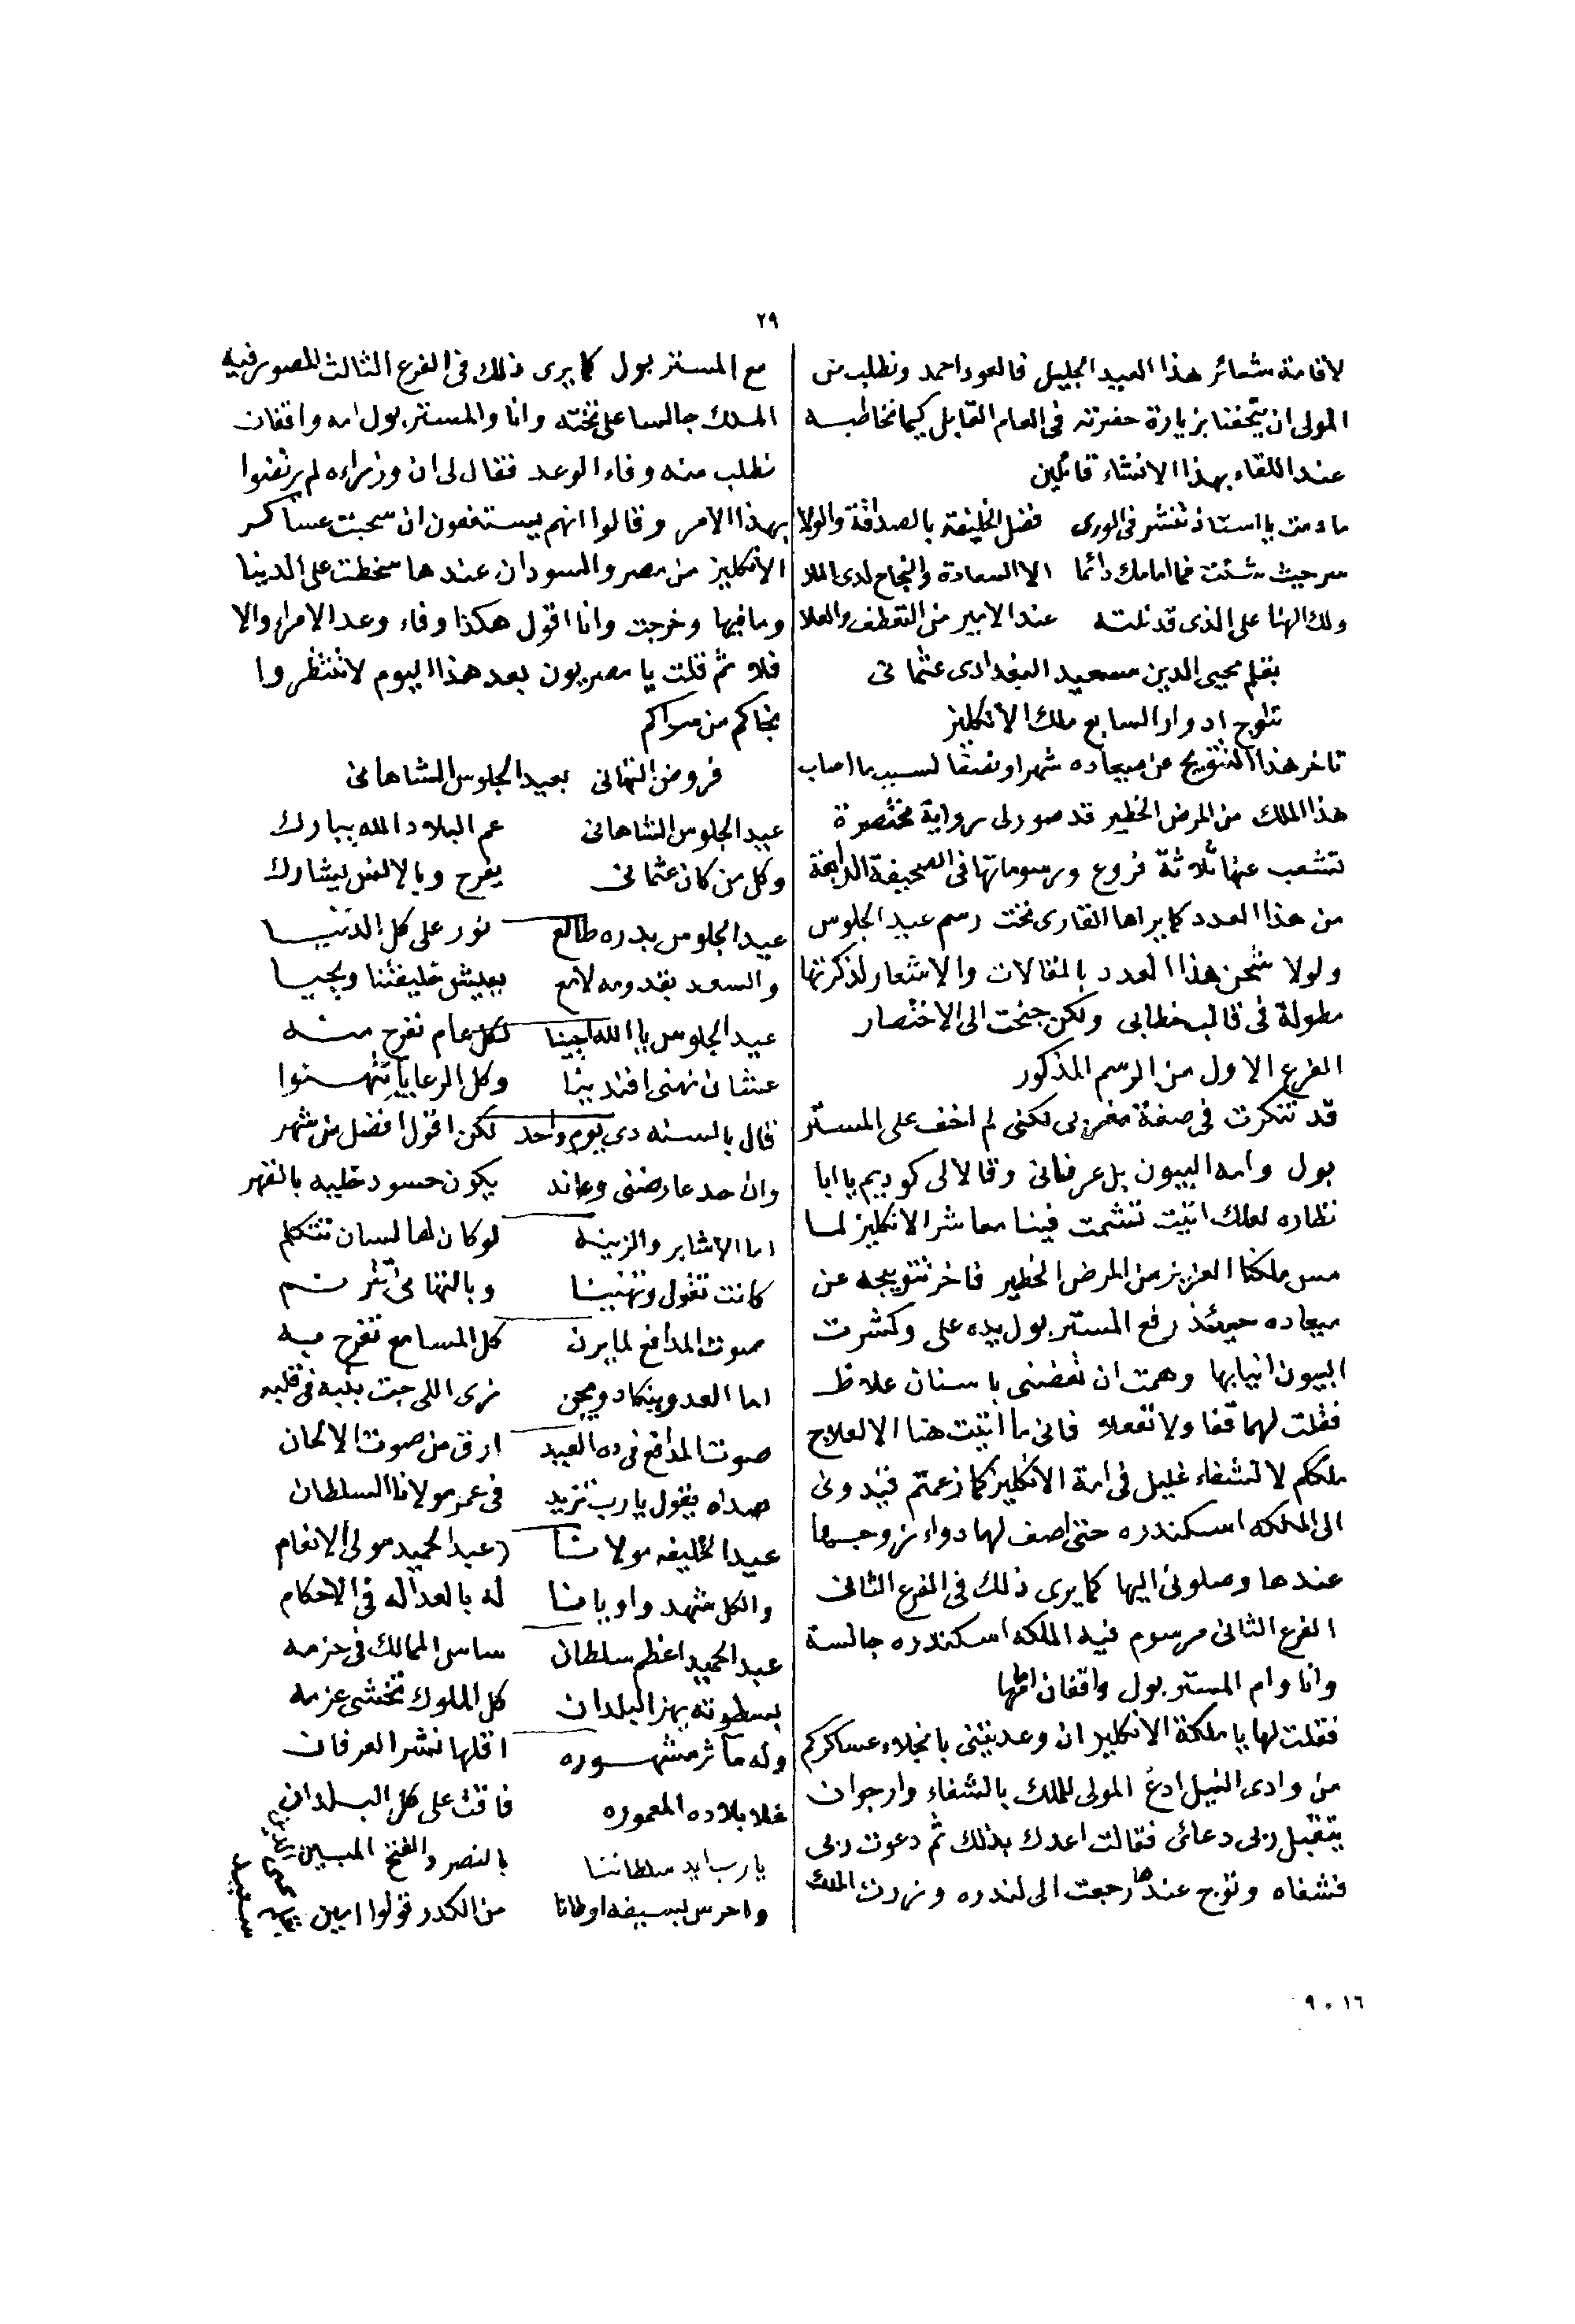 ٢٩
لاقامة شعائر هذا العيد الجليل فالعود احمد ونطلب من
المولى ان يتحفنا بزيارة حضرته فى العام القابل كيما نخاطبه
عند اللقاء بهذا الانشاء قائلين
مادمت يا استاذ تنشر فى الورى فضل الخليفة بالصداقة والولا
سر حيث شئت فما امامك دائما الا السعادة والنجاح لدى الملا
ولك الهنا على الذى قد نلته عند الامير من التعطف والعلا
بقلم محيى الدين سعيد البغدادى عثمانى
تتوج ادوار السابع ملك الانكليز
تاخر هذا التتويج عن ميعاده شهرا ونصفا لسبب ما اصاب
هذا الملك من المرض الخطير قد صور لى رواية مختصرة
تتشعب عنها ثلاثة فروع ورسوماتها فى الصحيفة الرابعة
من هذا العدد كما يراها القارى تحت رسم عيد الجلوس
ولولا شحن هذا العدد بالمقالات والاشعار لذكرتها
مطولة فى قالب خطابى ولكن جنحت الى الاختصار
الفرع الاول من الرسم المذكور
قد تنكرت فى صفة مغربى لكنى لم اخف على المستر
بول وامه البيون بل عرفانى وقالا لى كوديم يا ابا
نظاره لعلك اتيت تتشمت فينا معاشر الانكليز لما
مس ملكنا العزيز من المرض الخطير فاخر تتويجه عن
ميعاده حينئذ رفع المستر بول يده على وكشرت
البيون انيابها وهمت ان تعضنى باسنان غلاظ
فقلت لهما قفا ولا تفعلا فانى ما اتيت هنا الا لعلاج
ملككم لا لشفاء غليل فى امة الانكليز كما زعمتم فيدونى
الى الملكه اسكندره حتى اصف لها دواء زوجها
عندها وصلونى اليها كما يرى ذلك فى الفرع الثانى
الفرع الثانى مرسوم فيه الملكه اسكندره جالسة
وانا وام المستر بول واقفان امامها
فقلت لها يا ملكة الانكليز ان وعدتينى بانجلاء عساكركم
من وادى النيل ادع المولى للملك بالشفاء وارجو ان
يتقبل ربى دعائى فقالت اعدك بذلك ثم دعوت ربى
فشفاه وتوج عندها رجعت الى لندره وزرت الملك
مع المستر بول كما يرى ذلك فى الفرع الثالث المصور فيه
الملك جالسا على تخته وانا والمستر بول امه واقفان
نطلب منه وفاء الوعد فقال لى ان وزراءه لم يرتضوا
بهذا الامر وقالوا انهم يستعفون ان سحبت عساكر
الانكليز من مصر والسودان عندها سخطت على الدنيا
وما فيها وخرجت وانا اقول هكذا وفاء وعد الامراء والا
فلا ثم قلت يا مصريون بعد هذا اليوم لا تنتظروا
نجاكم من سواكم
فروض التهانى بعيد الجلوس الشاهانى
عيد الجلوس الشاهانى عم البلاد الله يبارك
وكل من كان عثمانى يفرح وبالانس يشارك
عيد الجلوس بدره طالع نور على كل الدنيا
والسعد بقدومه لامع يعيش خليفتنا ويحيا
عيد الجلوس يا الله احيينا لكل عام نفرح منه
عشان نهنى افندينا وكل الرعايا يتهنوا
قال بالسنه دى يوم واحد لكن اقول افضل من شهر
وان حد عارضنى وعاند يكون حسود خليه بالقهر
اما الاشاير والزينه لو كان لها لسان تتكلم
كانت تقول وتهنينا وبالتهانى تترنم
صوت المدافع لما يرن كل المسامع تفرح بيه
اما العدو ينكاد ويجن نرى اللى جت بنبه فى قلبه
صوت المدافع فى ده العيد ارق من صوت الالحان
صداه يقول يارب تزيد فى عمر مولانا السلطان
عيد الخليفه مولانا (عبد الحميد مولى الانعام
والكل شهد واويانا له بالعداله فى الاحكام
عبد الحميد اعظم سلطان ساس الممالك فى حزمه
بسطوته يهز البلدان كل الملوك تخشى عزمه
وله مآثر مشهوره اقلها نشر العرفان
خلا بلاده المعموره فاقت على كل البلدان
يارب ايد سلطاننا بالنصر والفتح المبين
واحرس بسيفه اوطاننا من الكدر قولوا امين
محيى الدين
سعيد
١٦ ٩٠